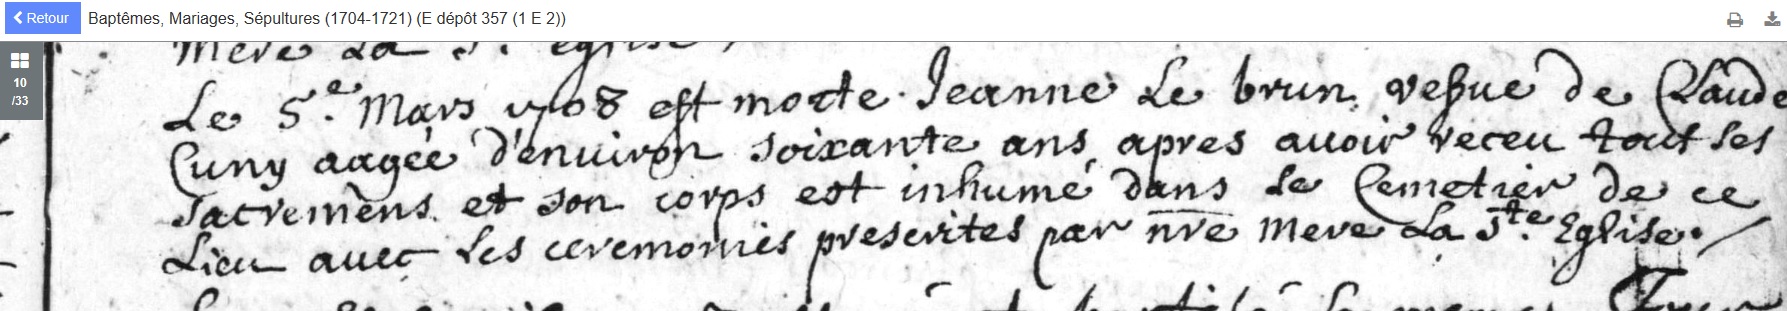 Retour Baptêmes, Mariages, Sépultures (1704-1721) (E dépôt 357 (1 E 2))
10
/33
mere La Ste eglise
Le 5e Mars 1708 est morte Jeanne Le brun vefue de Claude
Cuny aagée d'enuiron soixante ans apres auoir receu tout les
sacremens et son corps est inhumé dans le Cemetier de ce
Lieu auec Les ceremonies prescrites par nre mere La Ste Eglise.